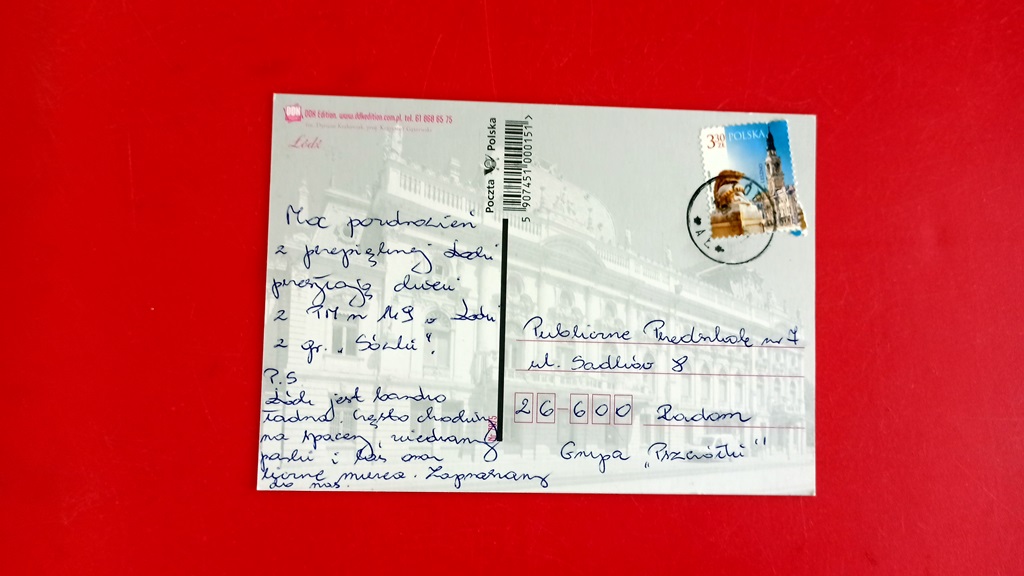 DDK Edition. www.ddkedition.com.pl, tel. 61 868 65 75
Łódź
Poczta Polska
5 907451 000151 >
3 30 zł POLSKA
Moc pozdrowień
z przepięknej Łodzi
przesyłają dzieci
z PM nr 149 w Łodzi
z gr. "Sówki".
P.S
Łódź jest bardzo
ładna. Często chodzimy
na spacery, zwiedzamy
parki i las oraz
liczne muzea. Zapraszamy
do nas.
Publiczne Przedszkole nr 7
ul. Sadków 8
26-600 Radom
Grupa "Pszczółki"